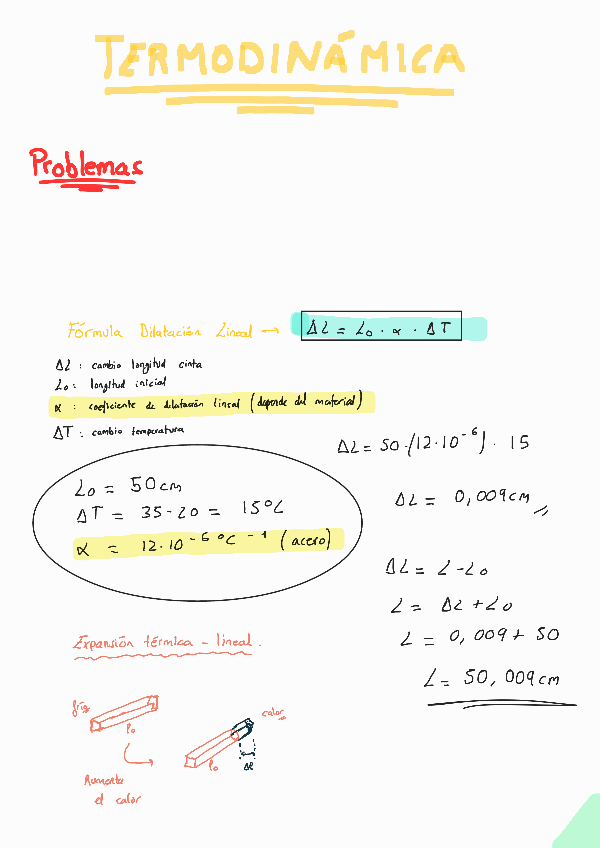 TERMODINÁMICA
Problemas
Fórmula Dilatación Lineal → ΔL = L₀ · α · ΔT
ΔL : cambio longitud cinta
L₀ : longitud inicial
α : coeficiente de dilatación lineal (depende del material)
ΔT : cambio temperatura
L₀ = 50cm
ΔT = 35-20 = 15°C
α = 12·10⁻⁶ °C⁻¹ (acero)
ΔL = 50·(12·10⁻⁶)·15
ΔL = 0,009cm
ΔL = L-L₀
L = ΔL + L₀
L = 0,009 + 50
L = 50,009cm
Expansión térmica - lineal.
frío
l₀
Aumenta
el calor
calor
l₀
Δl